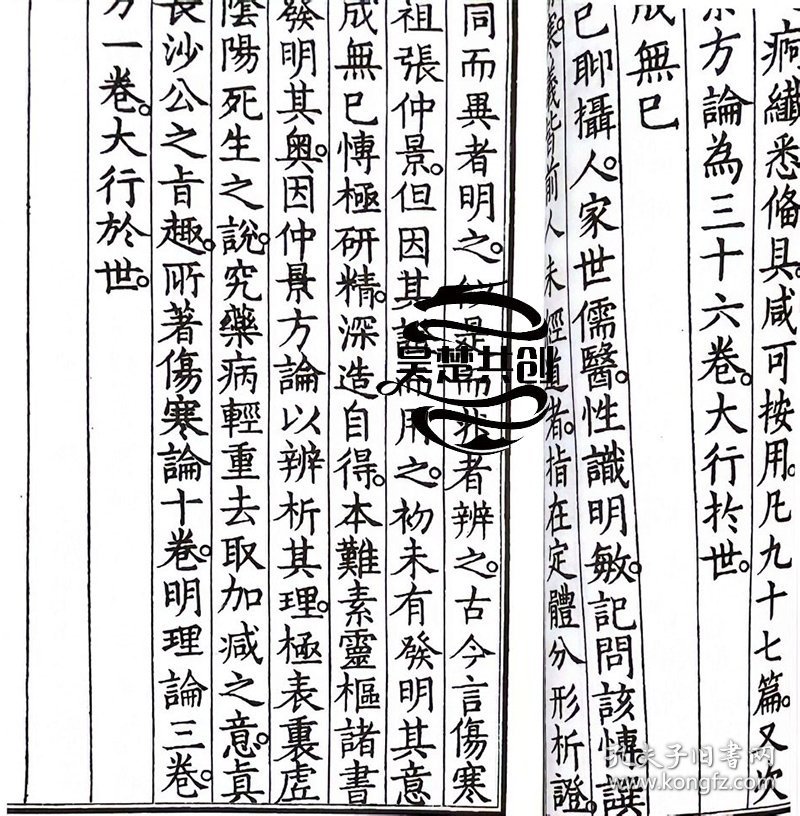 病纖悉俻具。咸可按用。凡九十七篇。又次
方論為三十六卷。大行扵世。
成無已
已聊攝人。家世儒醫。性識明敏。記問該慱。譔
義皆前人未經道者。指在定體分形析證。
同而異者明之。似是而非者辨之。古今言傷寒
祖張仲景。但因其證而用之。初未有發明其意
成無已慱極研精。深造自得。本難素靈樞諸書
發明其奥。因仲景方論以辨析其理。極表裏虚
陰陽死生之說。究藥病輕重去取加减之意。眞
長沙公之旨趣。所著傷寒論十卷。明理論三卷。
方一卷。大行於世。
昊楚共创
孔夫子旧书网
www.kongfz.com